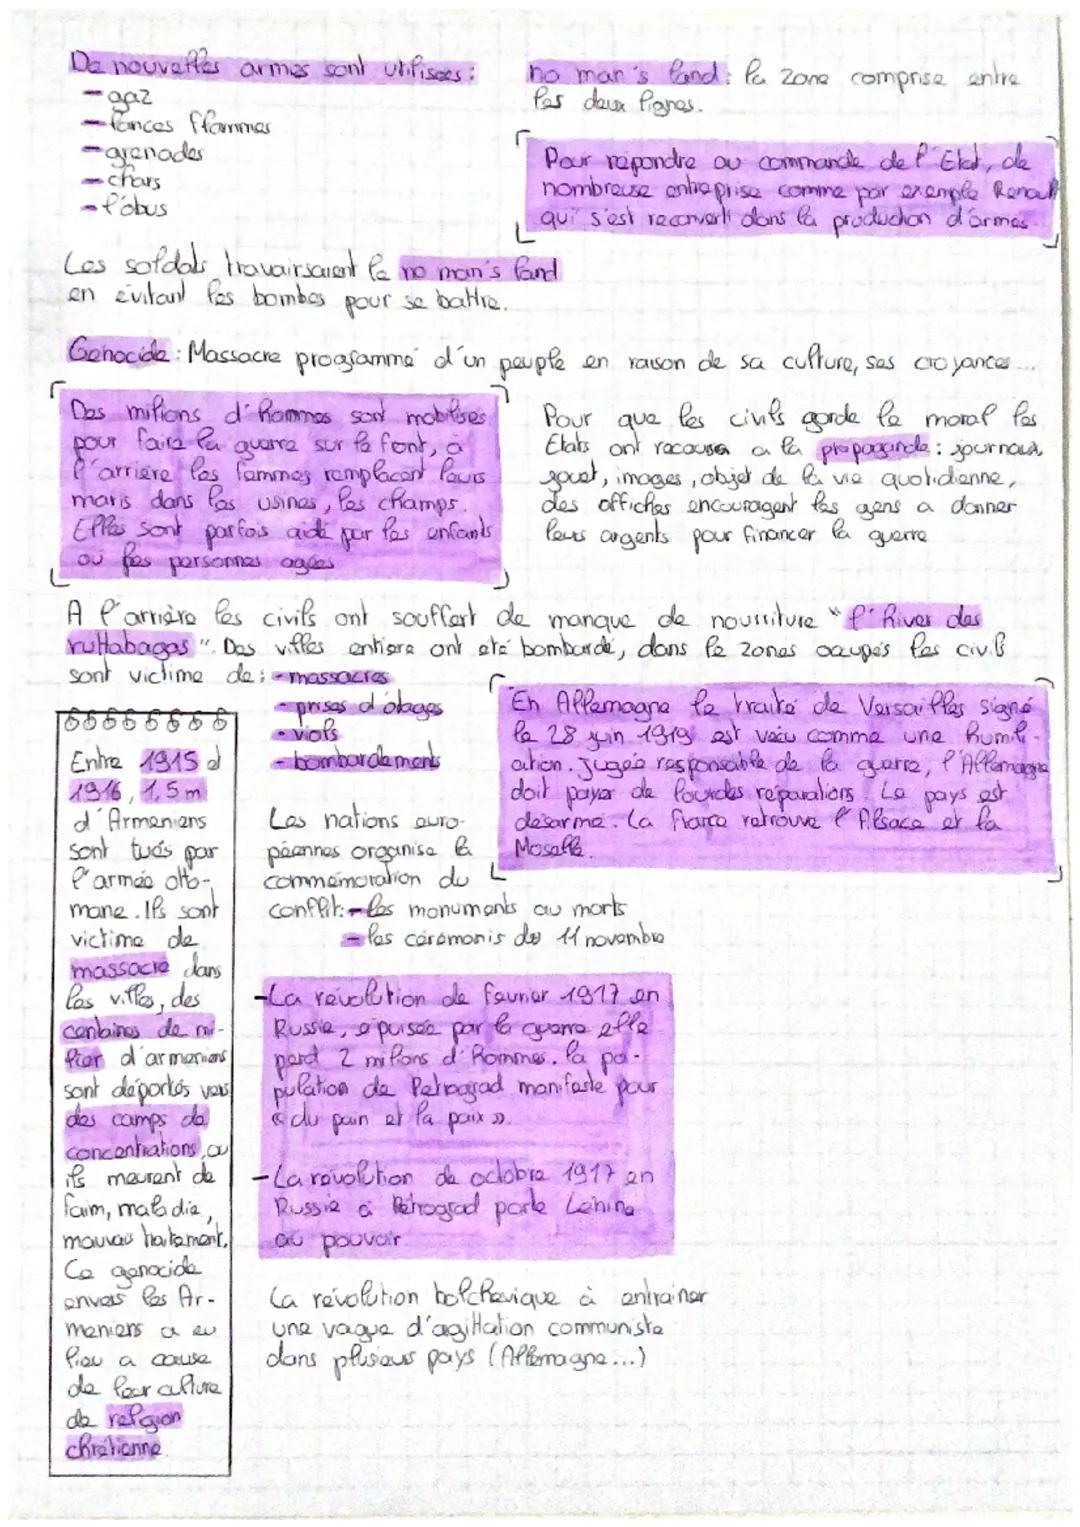 De nouvelles armes sont utilisées :
- gaz
- lances flammes
- grenades
- chars
- l'obus
no man's land : la zone comprise entre
les deux lignes.
Pour répondre au commande de l'Etat, de
nombreuse entreprise comme par exemple Renault
qui s'est reconverti dans la production d'armes.
Les soldats travairsaient le no man's land
en évitant les bombes pour se battre.
Génocide : Massacre programmé d'un peuple en raison de sa culture, ses croyances...
Des milions d'hommes sont mobilisés
pour faire la guerre sur le font, à
l'arrière les femmes remplacent leurs
maris dans les usines, les champs.
Elles sont parfois aidé par les enfants
ou les personnes agées
Pour que les civils garde le moral les
Etats ont recours a la propagande : journaux,
jouet, images, objet de la vie quotidienne,
des affiches encouragent les gens a donner
leurs argents pour financer la guerre
A l'arrière les civils ont souffert de manque de nourriture "l'hiver des
ruttabagas". Des villes entiere ont été bombardé, dans le zones occupés les civils
sont victime de : - massacres
- prises d'otages
- viols
- bombardements
En Allemagne le traité de Versailles signé
le 28 juin 1919 est vécu comme une humili-
ation. Jugée responsable de la guerre, l'Allemagne
doit payer de lourdes réparations. Le pays est
désarmé. La France retrouve l'Alsace et la
Moselle.
Entre 1915 et
1916, 1,5 m
d'Arméniens
sont tués par
l'armée otto-
mane. Ils sont
victime de
massacre dans
les villes, des
centaines de mi-
llier d'arméniens
sont déportés vers
des camps de
concentrations, ou
ils meurent de
faim, maladie,
mauvais traitement.
Ce génocide
envers les Ar-
méniens a eu
lieu a cause
de leur culture
de religion
chrétienne.
Les nations euro-
péennes organise la
commémoration du
conflit : - les monuments au morts
- les cérémonis des 11 novembre
- La révolution de février 1917 en
Russie, épuisée par la guerre elle
perd 2 milions d'hommes. la po-
pulation de Petrograd manifeste pour
« du pain et la paix ».
- La révolution de octobre 1917 en
Russie à Pétrograd porte Lénine
au pouvoir.
La révolution bolchevique à entrainer
une vague d'agittation communiste
dans plusieurs pays (Allemagne...)